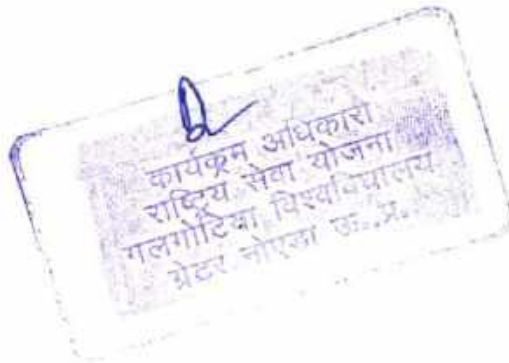 कार्यक्रम अधिकारी
राष्ट्रिय सेवा योजना
गलगोटिया विश्वविद्यालय
ग्रेटर नोएडा उ..प्र..